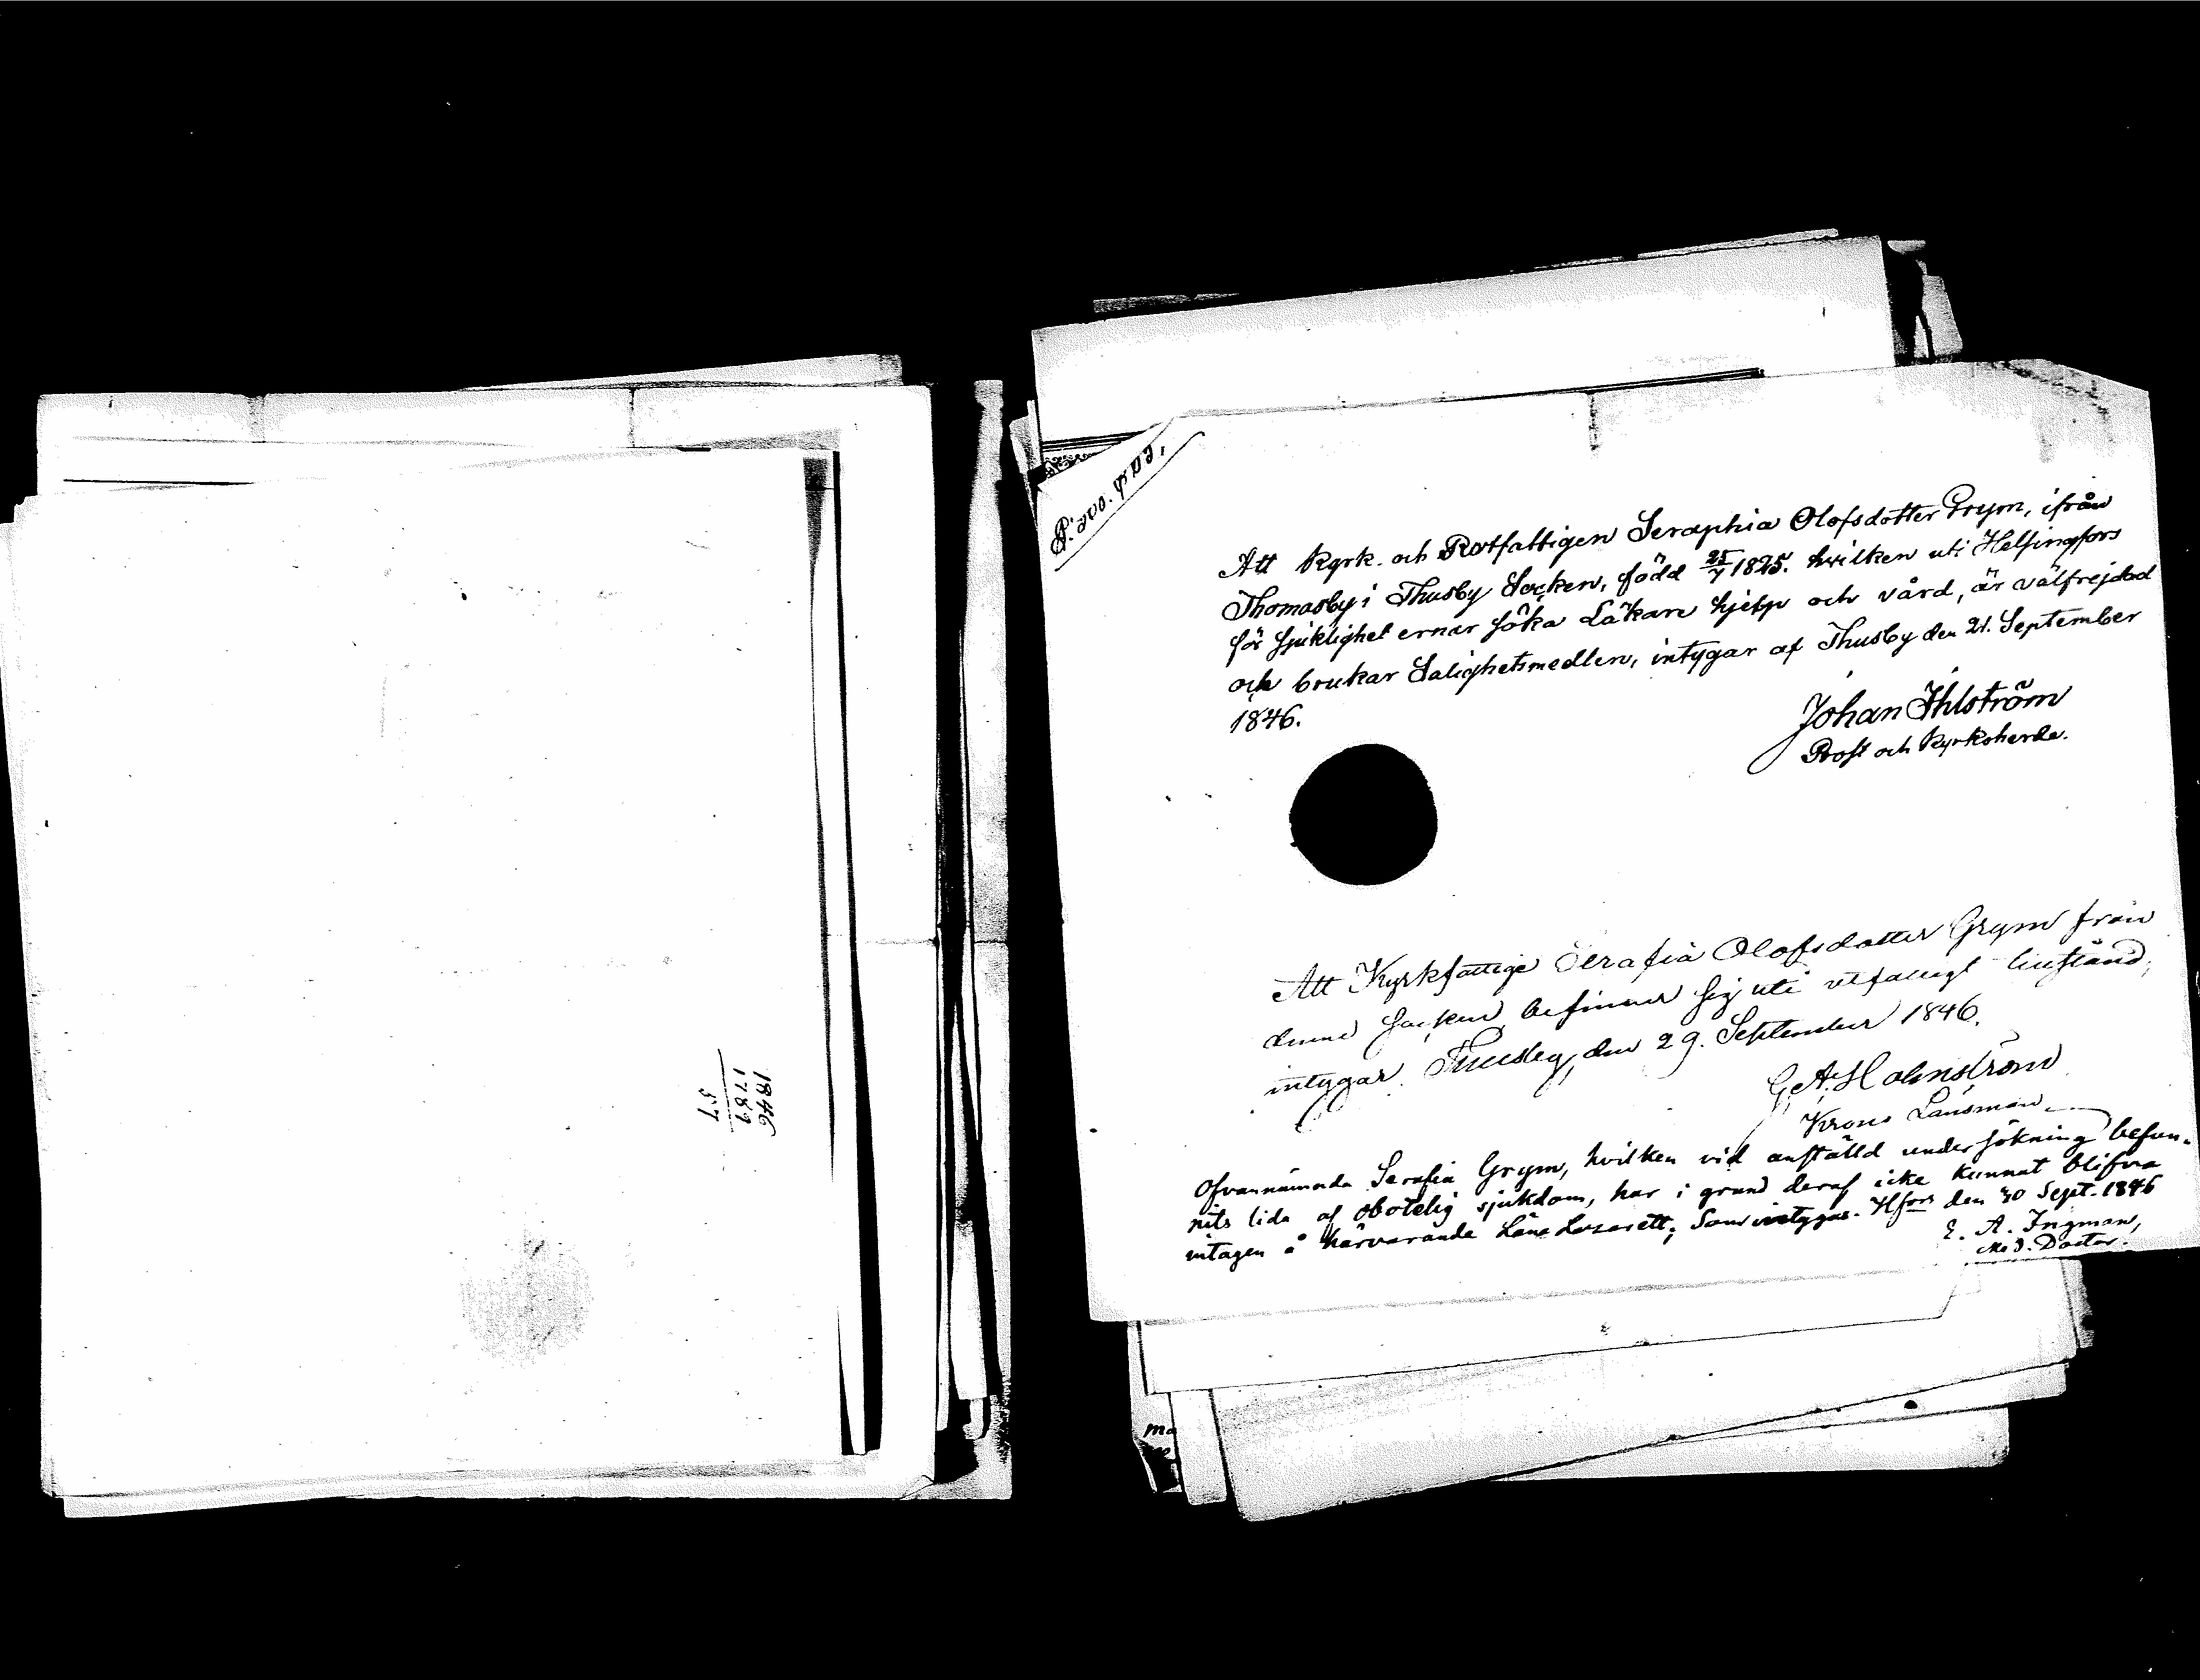 1846
1789
57
Att Kyrk- och Rotfattigen Seraphia Olofsdotter Grym, ifrån
Thomasby i Thusby Socken, född 25/7 1825. hvilken uti Helsingfors
för sjuklighet ernar söka Läkare hjelp och vård, är välfrejdad
och brukar Salighetsmedlen, intygar af Thusby den 21. September
1846.
Johan Ihlström
Prost och Kyrkoherde.
Att Kyrkfattige Serafia Olofsdotter Grym från
denne Socken befinner sig uti utfattigt tillstånd,
intygar. Thusby, den 29. September 1846.
G. A. Holmström
Krono Länsman
Ofvannämnda Serafia Grym, hvilken vid anställd undersökning befun-
nits lida af obotelig sjukdom, har i grund deraf icke kunnat blifva
intagen å härvarande Läns Lazarett; Som intygas. Hfors den 30 Sept. 1846
E. A. Ingman,
Med. Doctor.